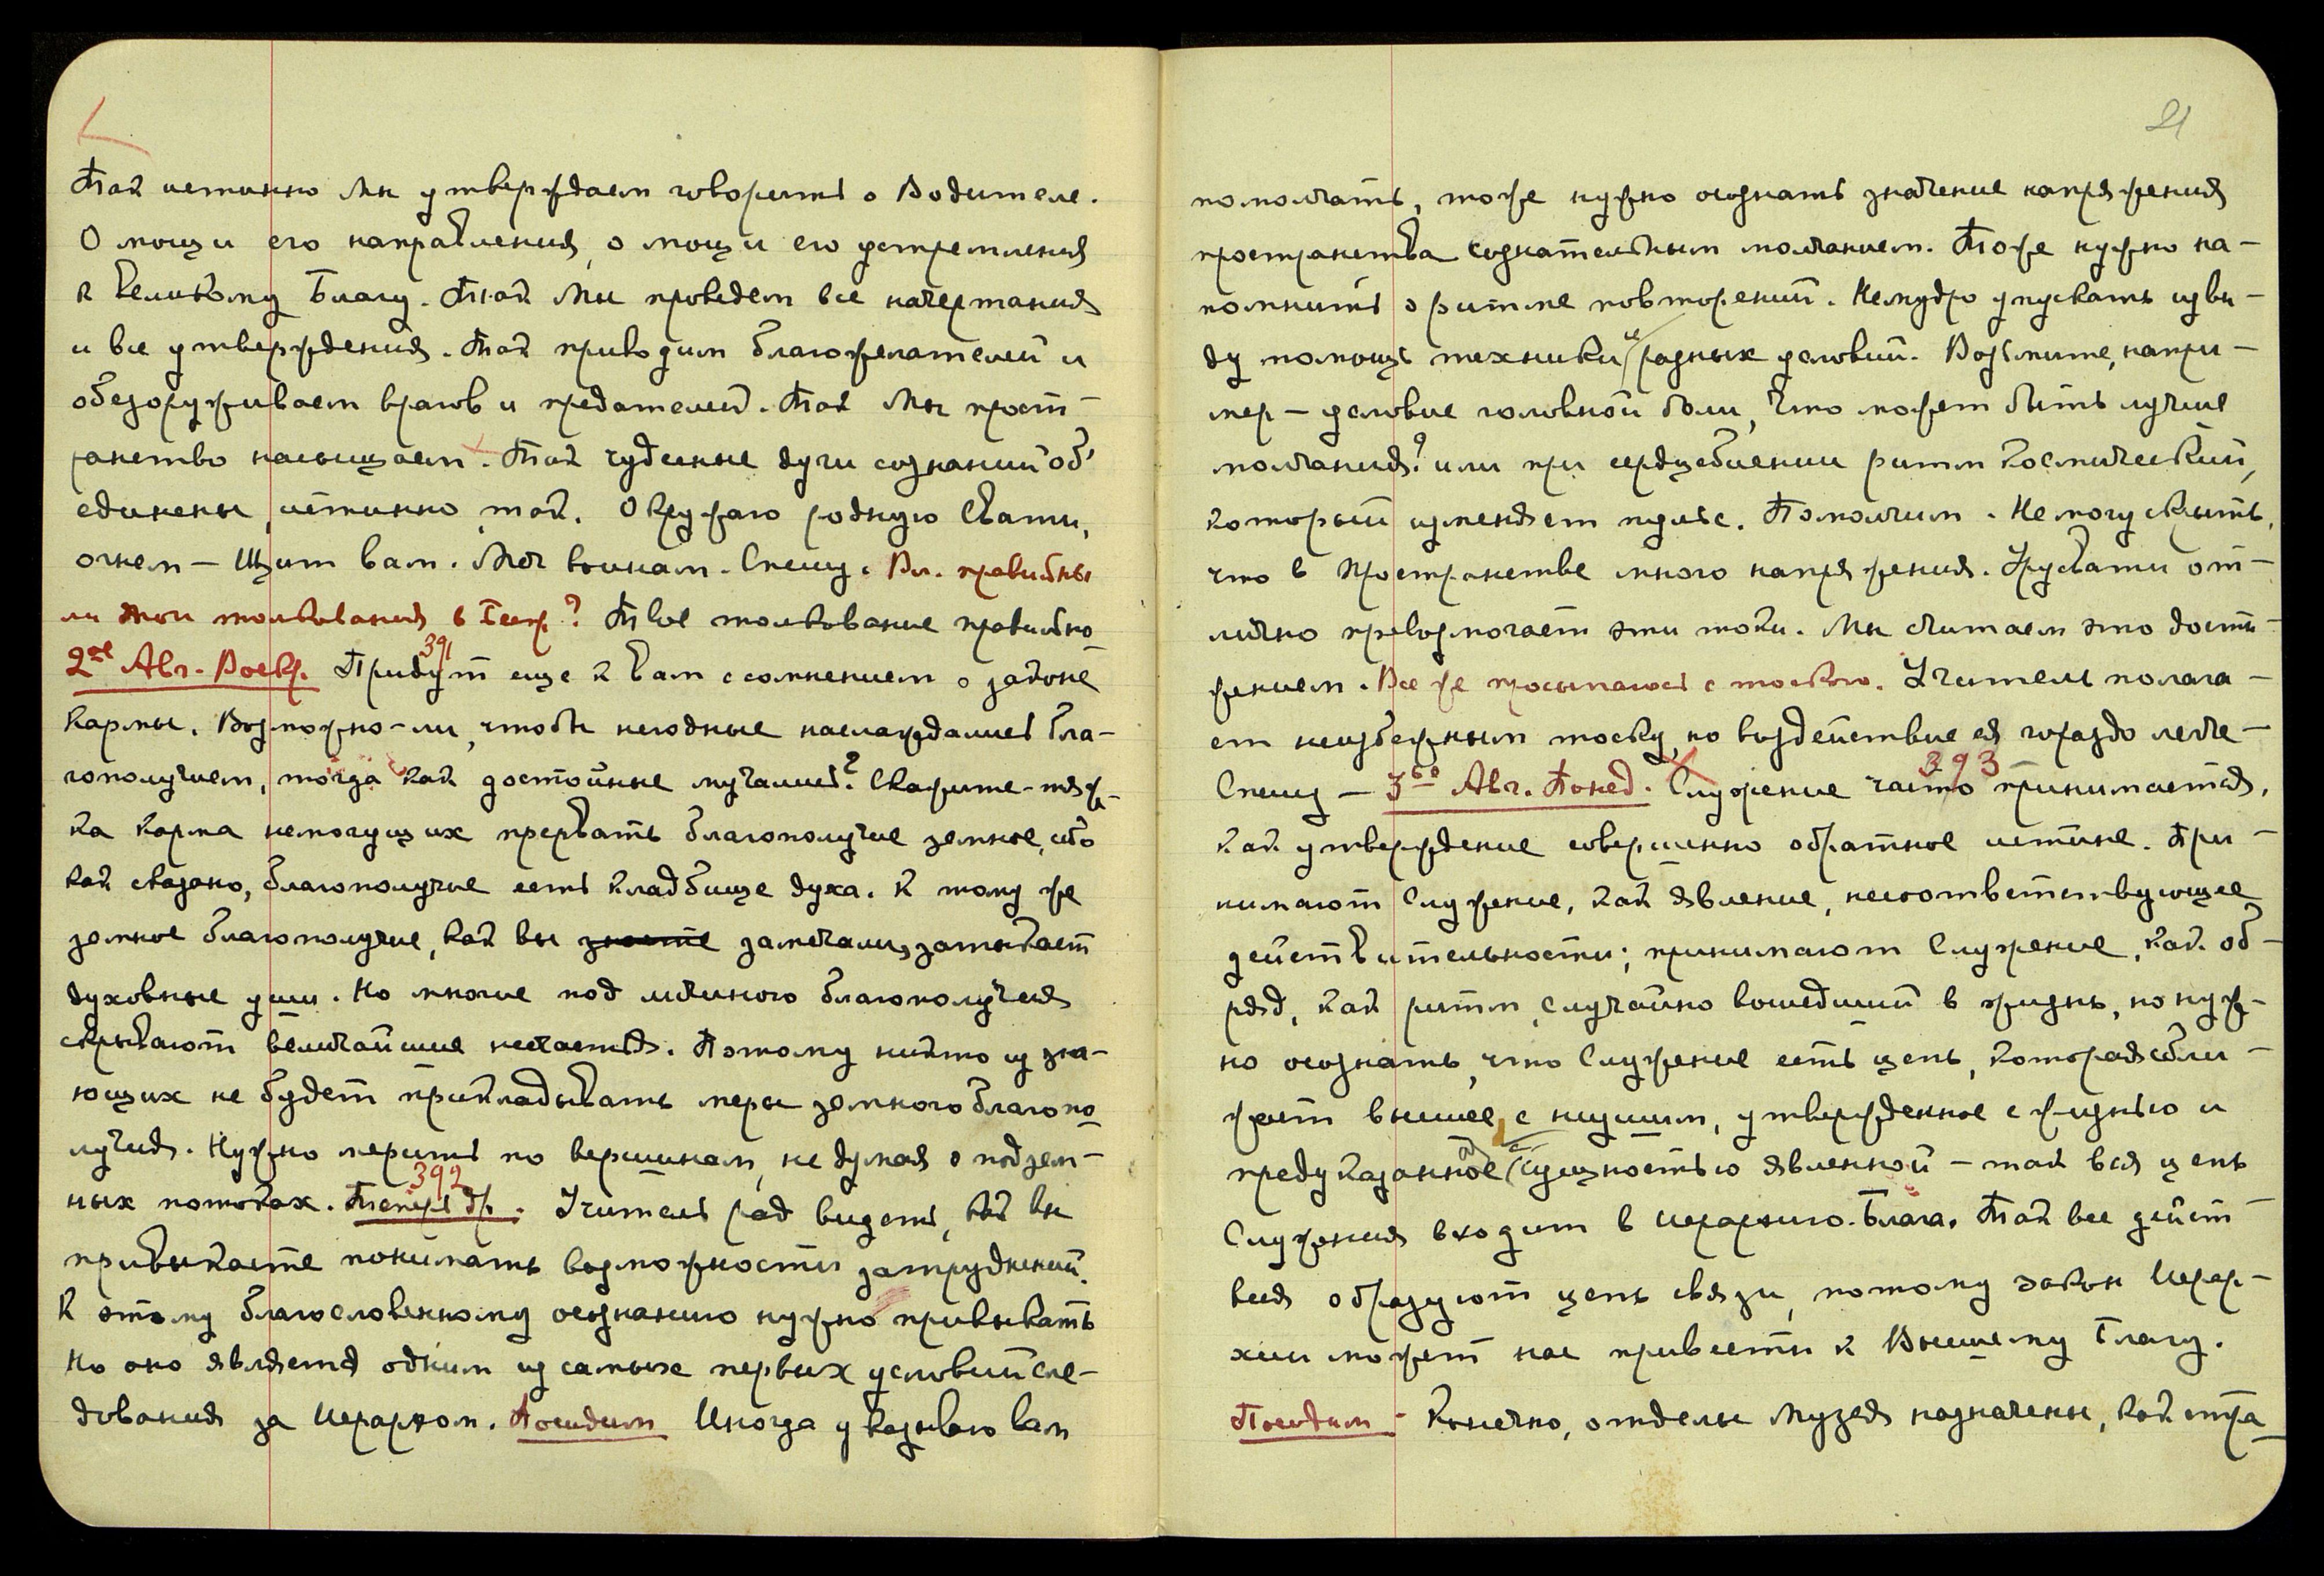 Так истинно Мы утверждаем говорить о Водителе.
О мощи его направления, о мощи его устремления
к Великому Благу. Так Мы проведем все начертания
и все утверждения. Так приводим благожелателей и
обезоруживаем врагов и предателей. Так Мы прост-
ранство насыщаем. Так чудесные дуги сознаний об'
единены, истинно, так. Окружаю родную Свати,
огнем – Щит вам. Меч воинам. Спешу. Вл. правильны
ли мои толкования в Иер? Твое толкование правильно
391
2ое Авг. Воскр. Придут еще к Вам с сомнением о законе
Кармы. Возможно-ли, чтобы негодные наслаждались бла-
гополучием, тогда как достойные мучались? Скажите – тяж-
ка карма немогущих прервать благополучие земное, ибо
как сказано, благополучие есть кладбище духа. К тому же
земное благополучие, как вы знаете замечали, затыкает
духовные уши. Но многие под личиною благополучия
скрывают величайшие несчастья. Потому никто из зна-
ющих не будет прикладывать меры земного благопо
лучия. Нужно мерить по вершинам, не думая о подзем-
392
ных потоках. Теперь др. Учитель рад видеть, как вы
привыкаете понимать возможности затруднений.
К этому благословенному осознанию нужно привыкать
Но оно является одним из самых первых условий сле-
дования за Иерархом. Посидим Иногда указываю вам
21
помолчать, тоже нужно осознать значение напряжения
пространства сознательным молчанием. Тоже нужно на-
помнить о ритме повторений. Немудро упускать из ви-
ду помощь техники и разных условий. Возьмите, напри-
мер – условие головной боли, что может быть лучше
молчания? или при сердцебиении ритм космический,
который изменяет пульс. Помолчим. Не могу скрыть,
что в пространстве много напряжения. Урусвати от-
лично превозмогает эти токи. Мы считаем это дости-
жением. Все же просыпаюсь с тоскою. Учитель полага-
ет неизбежным тоску, но воздействие ея гораздо легче-
393
Спешу – 3ье Авг. Понед. Служение часто принимается,
как утверждение совершенно обратное истине. При-
нимают Служение, как явление, несоответствующее
действительности; принимают Служение, как об-
ряд, как ритм, случайно вошедший в жизнь, но нуж-
но осознать, что Служение есть цепь, которая сбли-
жает высшее с низшим, утвержденное с жизнью и
предуказанное с сущностью явленной – так вся цепь
Служения входит в Иерархию Блага. Так все дейст-
вия образуют цепь связи, потому закон Иерар-
хии может нас привести к Высшему Благу.
Посидим – Конечно, отделы Музея назначены, как стра